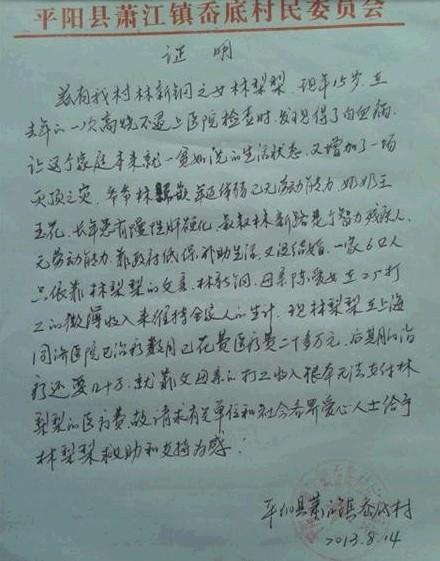 平阳县萧江镇岙底村民委员会
证 明
兹有我村林新钢之女林梨梨，现年15岁，在
去年的一次高烧不退上医院检查时，发现得了白血病，
让这个家庭本来就一贫如洗的生活状态，又增加了一场
灭顶之灾，爷爷林 年迈体弱已无劳动能力，奶奶王
玉花，长年患有慢性肝硬化，叔叔林新 是个智力残疾人，
无劳动能力，靠政府低保补助生活，又没结婚，一家6口人
只依靠林梨梨的父亲，林新钢，母亲陈爱女在工厂打
工的微薄收入来维持全家人的生计，现林梨梨在上海
同济医院已治疗数月已花费医疗费二十多万元，后其期的治
疗还要几十万，就靠父母亲的打工收入根本无法支付林
梨梨的医疗费，故请求有关单位和社会各界爱心人士给予
林梨梨救助和支持为感！
平阳县萧江镇岙底村
2013.8.14